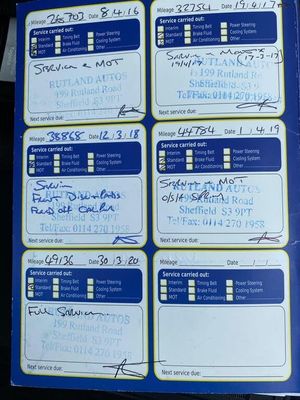 Mileage 26703 Date 8/4/16
Service carried out:
Interim Timing Belt Power Steering
Standard Brake Fluid Cooling System
MOT Air Conditioning Other
SERVICE & MOT
RUTLAND AUTOS
199 Rutland Road
Sheffield S3 9PT
Tel/Fax: 0114 270 1958
Next service due:
Mileage 32754 Date 19/4/17
Service carried out:
Interim Timing Belt Power Steering
Standard Brake Fluid Cooling System
MOT Air Conditioning Other
SERVICE
19/4/17
RUTLAND AUTOS
199 Rutland Road
Sheffield S3 9PT
Tel/Fax: 0114 270 1958
Next service due:
Mileage 38868 Date 12/3/18
Service carried out:
Interim Timing Belt Power Steering
Standard Brake Fluid Cooling System
MOT Air Conditioning Other
Service
RUTLAND AUTOS
199 Rutland Road
Sheffield S3 9PT
Tel/Fax: 0114 270 1958
Next service due:
Mileage 44784 Date 1/4/19
Service carried out:
Interim Timing Belt Power Steering
Standard Brake Fluid Cooling System
MOT Air Conditioning Other
SERVICE & MOT
RUTLAND AUTOS
199 Rutland Road
Sheffield S3 9PT
Tel/Fax: 0114 270 1958
Next service due:
Mileage 49136 Date 30/3/20
Service carried out:
Interim Timing Belt Power Steering
Standard Brake Fluid Cooling System
MOT Air Conditioning Other
Full Service
RUTLAND AUTOS
199 Rutland Road
Sheffield S3 9PT
Tel/Fax: 0114 270 1958
Next service due:
Mileage Date / /
Service carried out:
Interim Timing Belt Power Steering
Standard Brake Fluid Cooling System
MOT Air Conditioning Other
Next service due: